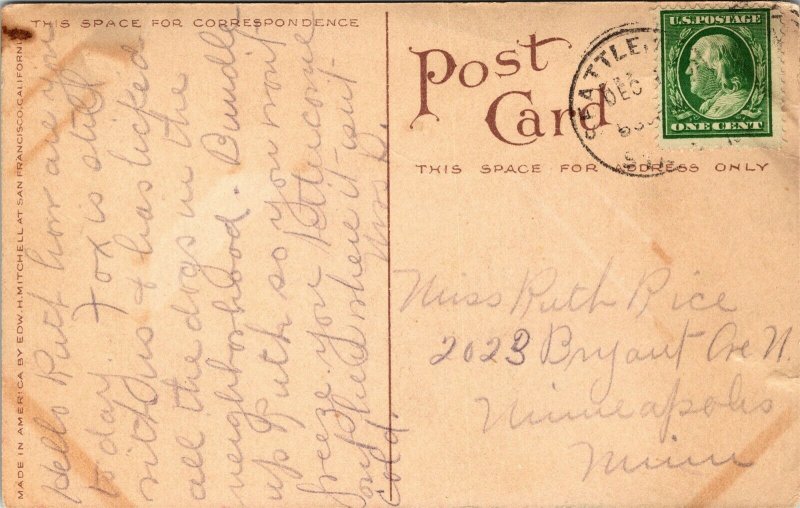 THIS SPACE FOR CORRESPONDENCE
Post
Card
THIS SPACE FOR ADDRESS ONLY
U.S. POSTAGE
ONE CENT
SEATTLE,
DEC
MADE IN AMERICA BY EDW. H. MITCHELL AT SAN FRANCISCO, CALIFORNIA
Hello Ruth how are you
today. Fox is still
with us & has licked
all the dogs in the
neighborhood. Bundle
up Ruth so you won't
freeze. you better come
out here where it isn't
cold.
Miss Ruth Rice
2023 Bryant Ave N.
Minneapolis
Minn